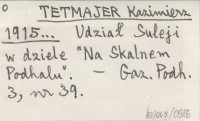 TETMAJER Kazimierz
1915... Udział Suleji
w dziele "Na Skalnem
Podhalu". – Gaz. Podh.
3, nr 39.